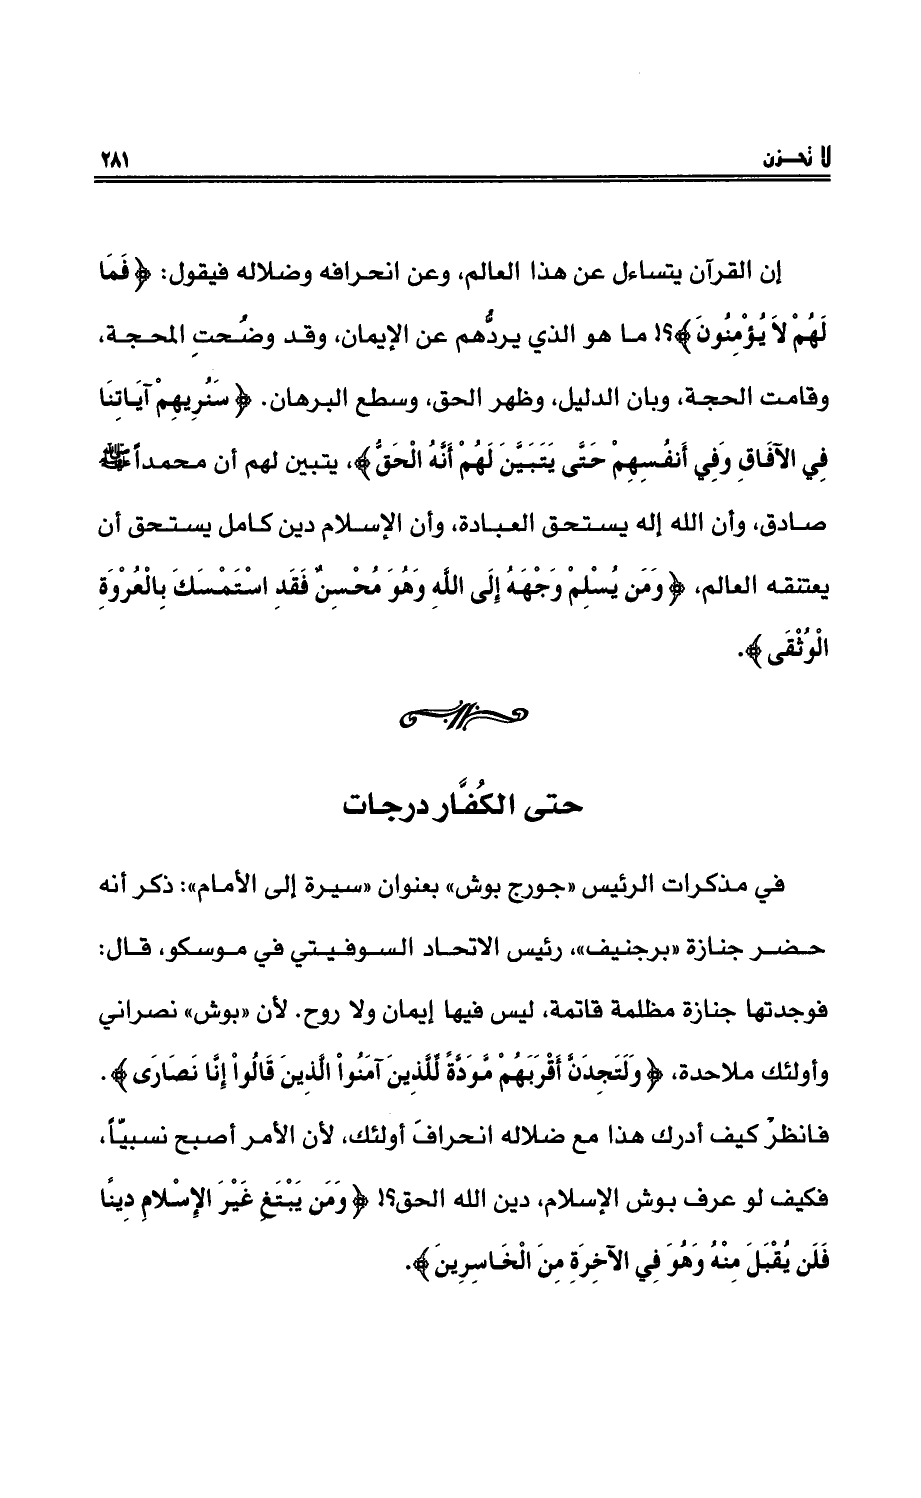 لا تحـزن ٢٨١
إن القرآن يتساءل عن هذا العالم، وعن انحرافه وضلاله فيقول: ﴿ فَمَا
لَهُمْ لاَ يُؤْمِنُونَ ﴾؟! ما هو الذي يردُّهم عن الإيمان، وقد وضُحتِ المحجة،
وقامت الحجة، وبان الدليل، وظهر الحق، وسطع البرهان. ﴿ سَنُرِيهِمْ آيَاتِنَا
فِي الآفَاقِ وَفِي أَنفُسِهِمْ حَتَّى يَتَبَيَّنَ لَهُمْ أَنَّهُ الْحَقُّ ﴾، يتبين لهم أن محمداً ﷺ
صادق، وأن الله إله يستحق العبادة، وأن الإسلام دين كامل يستحق أن
يعتنقه العالم، ﴿ وَمَن يُسْلِمْ وَجْهَهُ إِلَى اللَّهِ وَهُوَ مُحْسِنٌ فَقَدِ اسْتَمْسَكَ بِالْعُرْوَةِ
الْوُثْقَى ﴾.
حتى الكُفَّار درجات
في مذكرات الرئيس «جورج بوش» بعنوان «سيرة إلى الأمام»: ذكر أنه
حضر جنازة «برجنيف»، رئيس الاتحاد السوفيتي في موسكو، قال:
فوجدتها جنازة مظلمة قاتمة، ليس فيها إيمان ولا روح. لأن «بوش» نصراني
وأولئك ملاحدة، ﴿ وَلَتَجِدَنَّ أَقْرَبَهُمْ مَّوَدَّةً لِّلَّذِينَ آمَنُواْ الَّذِينَ قَالُواْ إِنَّا نَصَارَى ﴾.
فانظرْ كيف أدرك هذا مع ضلاله انحرافَ أولئك، لأن الأمر أصبح نسبيّاً،
فكيف لو عرف بوش الإسلام، دين الله الحق؟! ﴿ وَمَن يَبْتَغِ غَيْرَ الإِسْلامِ دِينًا
فَلَن يُقْبَلَ مِنْهُ وَهُوَ فِي الآخِرَةِ مِنَ الْخَاسِرِينَ ﴾.